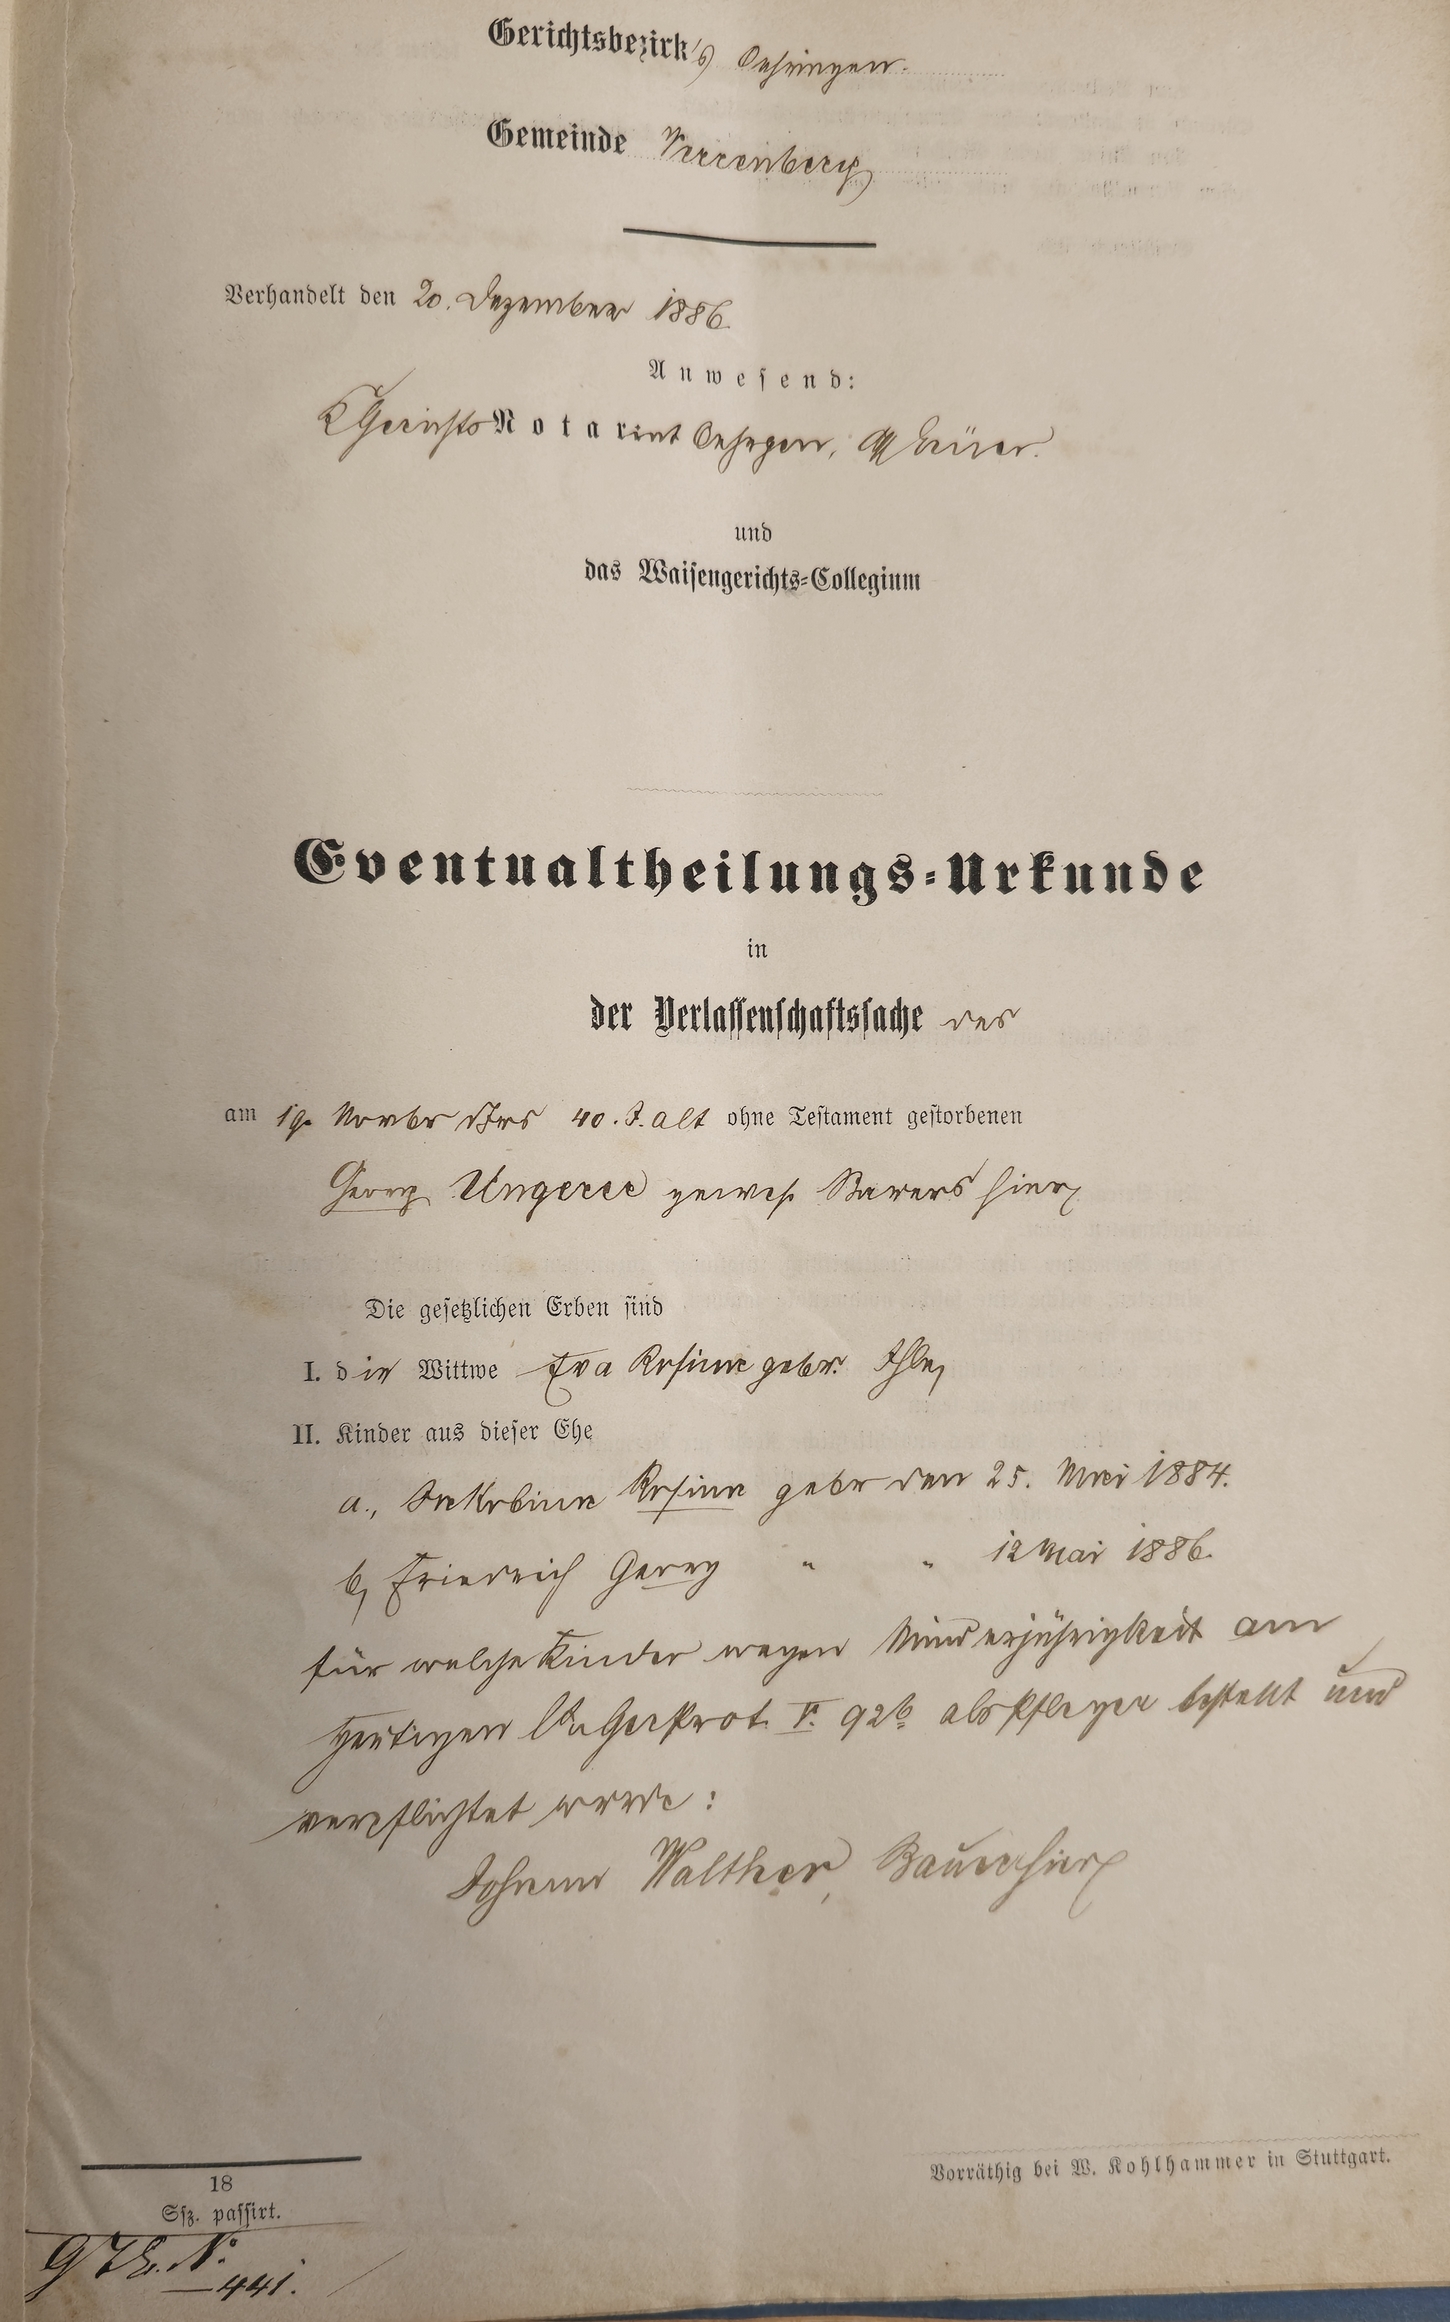 Gerichtsbezirk's Oehringen.
Gemeinde Verrenberg
Verhandelt den 20. Dezember 1886.
Anwesend:
K Gerichts Notariat Oehrgen,
und
das Waisengerichts-Collegium
Eventualtheilungs-Urkunde
in
der Verlassenschaftssache des
am 19. Novbr dJrs 40. J. alt ohne Testament gestorbenen
Georg Ungerer gewes. Bauers hier
Die gesetzlichen Erben sind
I. die Wittwe Eva Rosine gebr. Ihle,
II. Kinder aus dieser Ehe
a., Jakobine Rosine gebr den 25. Mai 1884.
b, Friedrich Georg " " 12 Mai 1886.
für welche Kinder wegen Minderjährigkeit am
Heutigen Prot. 92b als Pfleger bestellt und
verpflichtet wurde:
Johann Walther, Bauer hier
18
Ssz. passirt.
Vorräthig bei W. Kohlhammer in Stuttgart.
No
441.